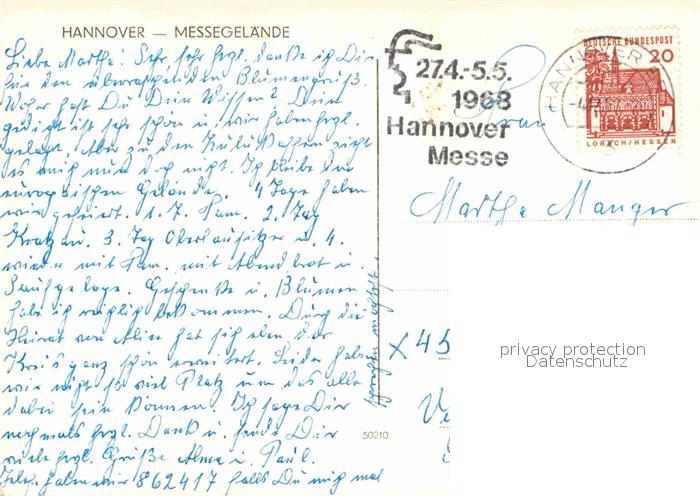 HANNOVER — MESSEGELÄNDE
Liebe Martha! Sehr, sehr hrzl. danke ich Dir
für den überraschenden Blumengruß.
Woher hast Du Dein Wissen? Dein
Gedicht ist sehr schön u. wir haben hrzl.
gelacht. Aber zu den Zulukaffern zieht
es mich nun doch nicht. Ich bleibe im
europäischen Gelände. 4 Tage haben
wir gefeiert. 1. T. Fam. 2. Tag
3. Tag Oberlausitzer u. 4.
wieder mit Fam. mit Abendbrot u.
Saufgelage. Geschenke u. Blumen
habe ich reichlich bekommen. Durch die
Heirat von hat sich eben der
Kreis ganz schön erweitert. Leider haben
wir nicht so viel Platz um das alle
dabei sein können. Ich sage Dir
nochmals hrzl. Dank u. sende Dir
viele hrzl. Grüße Alma u. Paul.
Telef. haben wir 862417 falls Du mich mal
sprechen möchtest.
50210
27.4.-5.5.
1968
Hannover
Messe
HANNOVER
DEUTSCHE BUNDESPOST
20
LORSCH/HESSEN
Frau
Martha Manger
X 45
privacy protection
Datenschutz